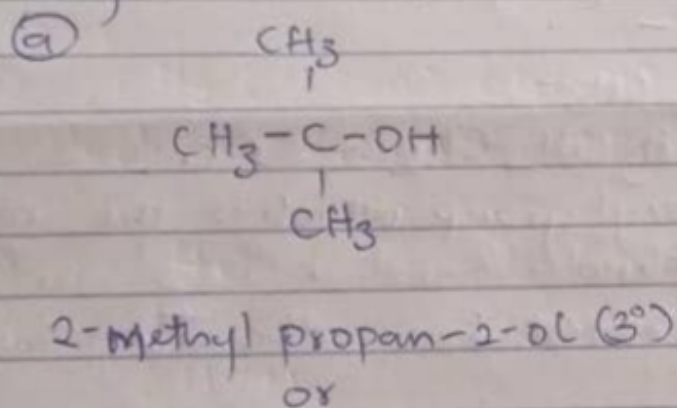 a
CH3
CH3-C-OH
CH3
2-Methyl propan-2-ol (3°)
or